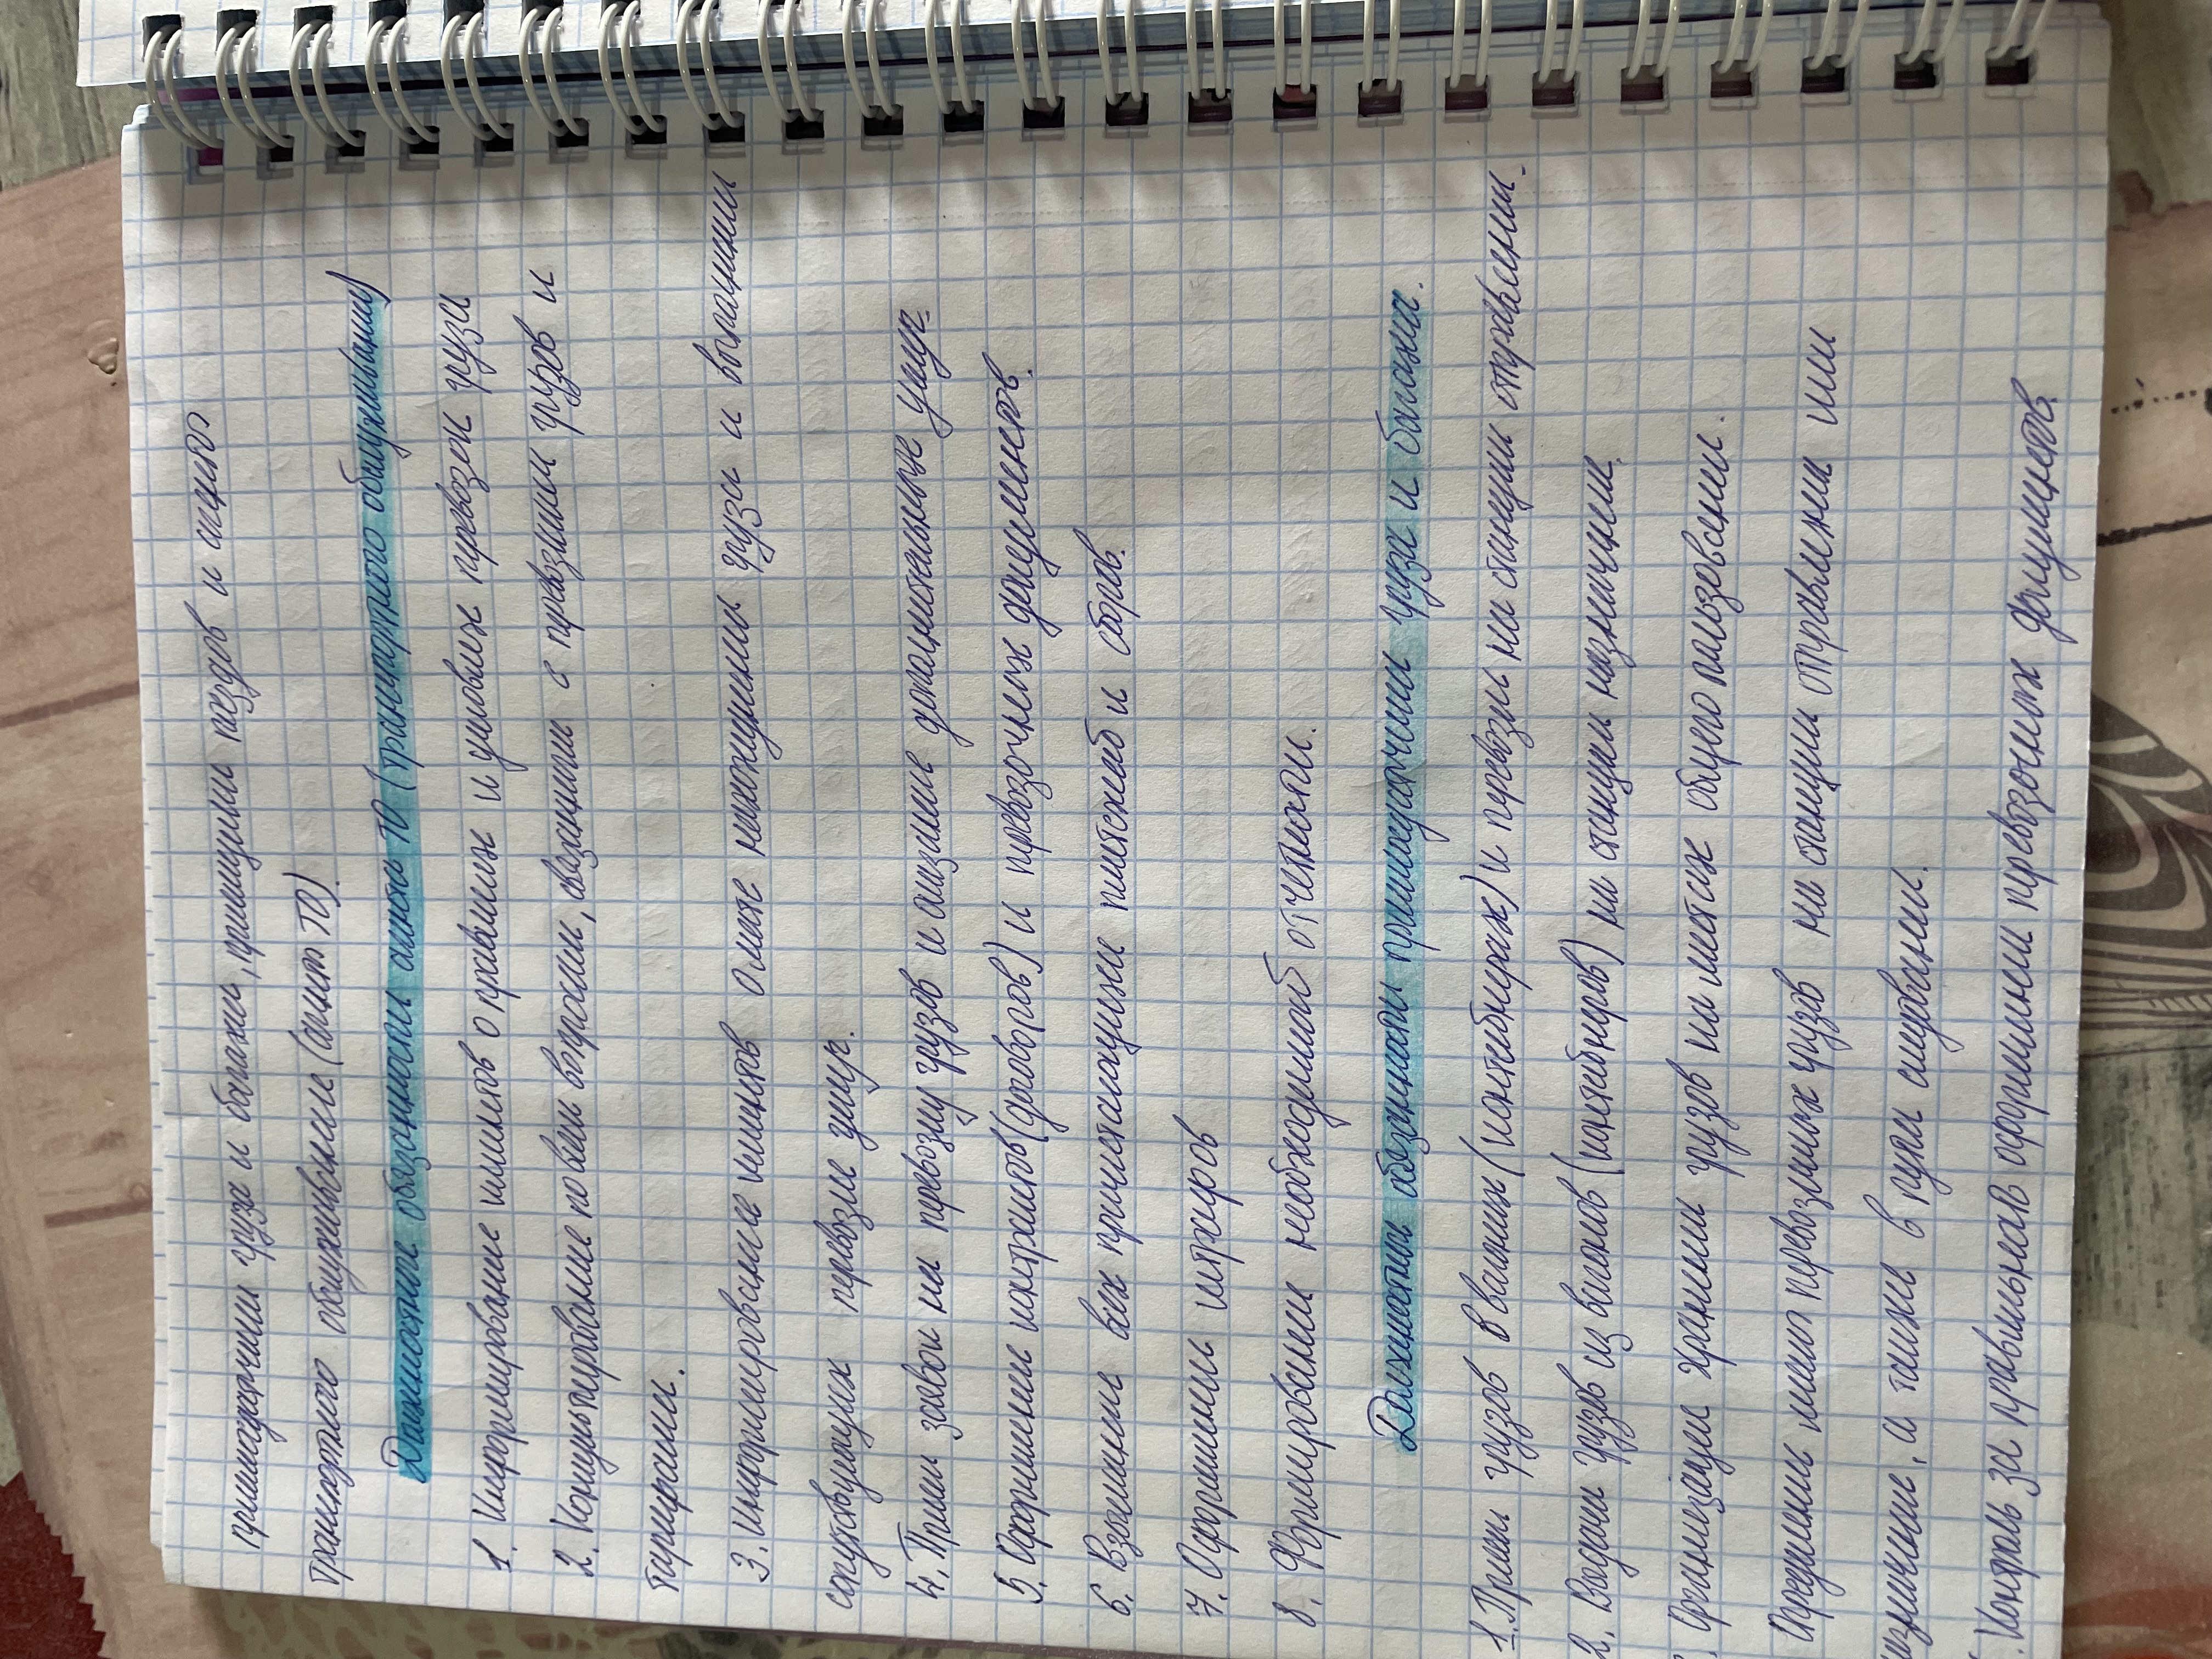 приемосдатчики груза и багажа, приемщики поездов и агент
транспортного обслуживание (агент ТО)
Должностные обязанности агента ТО (транспортного обслуживания)
1. Информирование клиентов о правилах и условиях превозки груза
2. Консультирование по всем вопросам, связанными с превозками грузов и
тарифами.
3. информирование клиентов о месте нахождения груза и выполнении
сопутствующих перевозке услуг.
4. Прием заявок на перевозку грузов и оказание дополнительных услуг
5. Оформление контрактов (договоров) и превозочных документов.
6. Взымание всех причитающихся платежей и сборов.
7. Оформление штрафов
8. Формирование необходимой отчетности.
Должностные обязанности приемосдатчика груза и багажа.
1. Прием грузов в вагонах (контейнерах) к перевозке на станции отправления.
2. Выдача грузов из вагонов (контейнеров) на станции назначения.
Организация хранения грузов на местах общего пользования.
Определение массы перевозимых грузов на станции отправления или
назначения, а также в пути следования.
Контроль за правильностью оформления перевозочных документов.